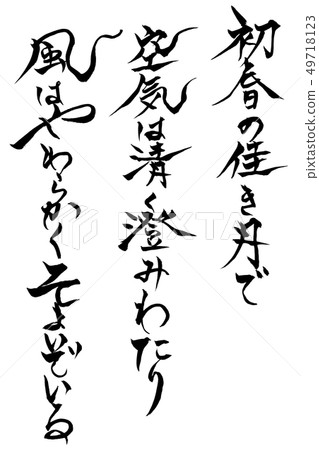 初春の佳き月で
空気は清く澄みわたり
風はやわらかくそよいでいる
PIXTA
49718123